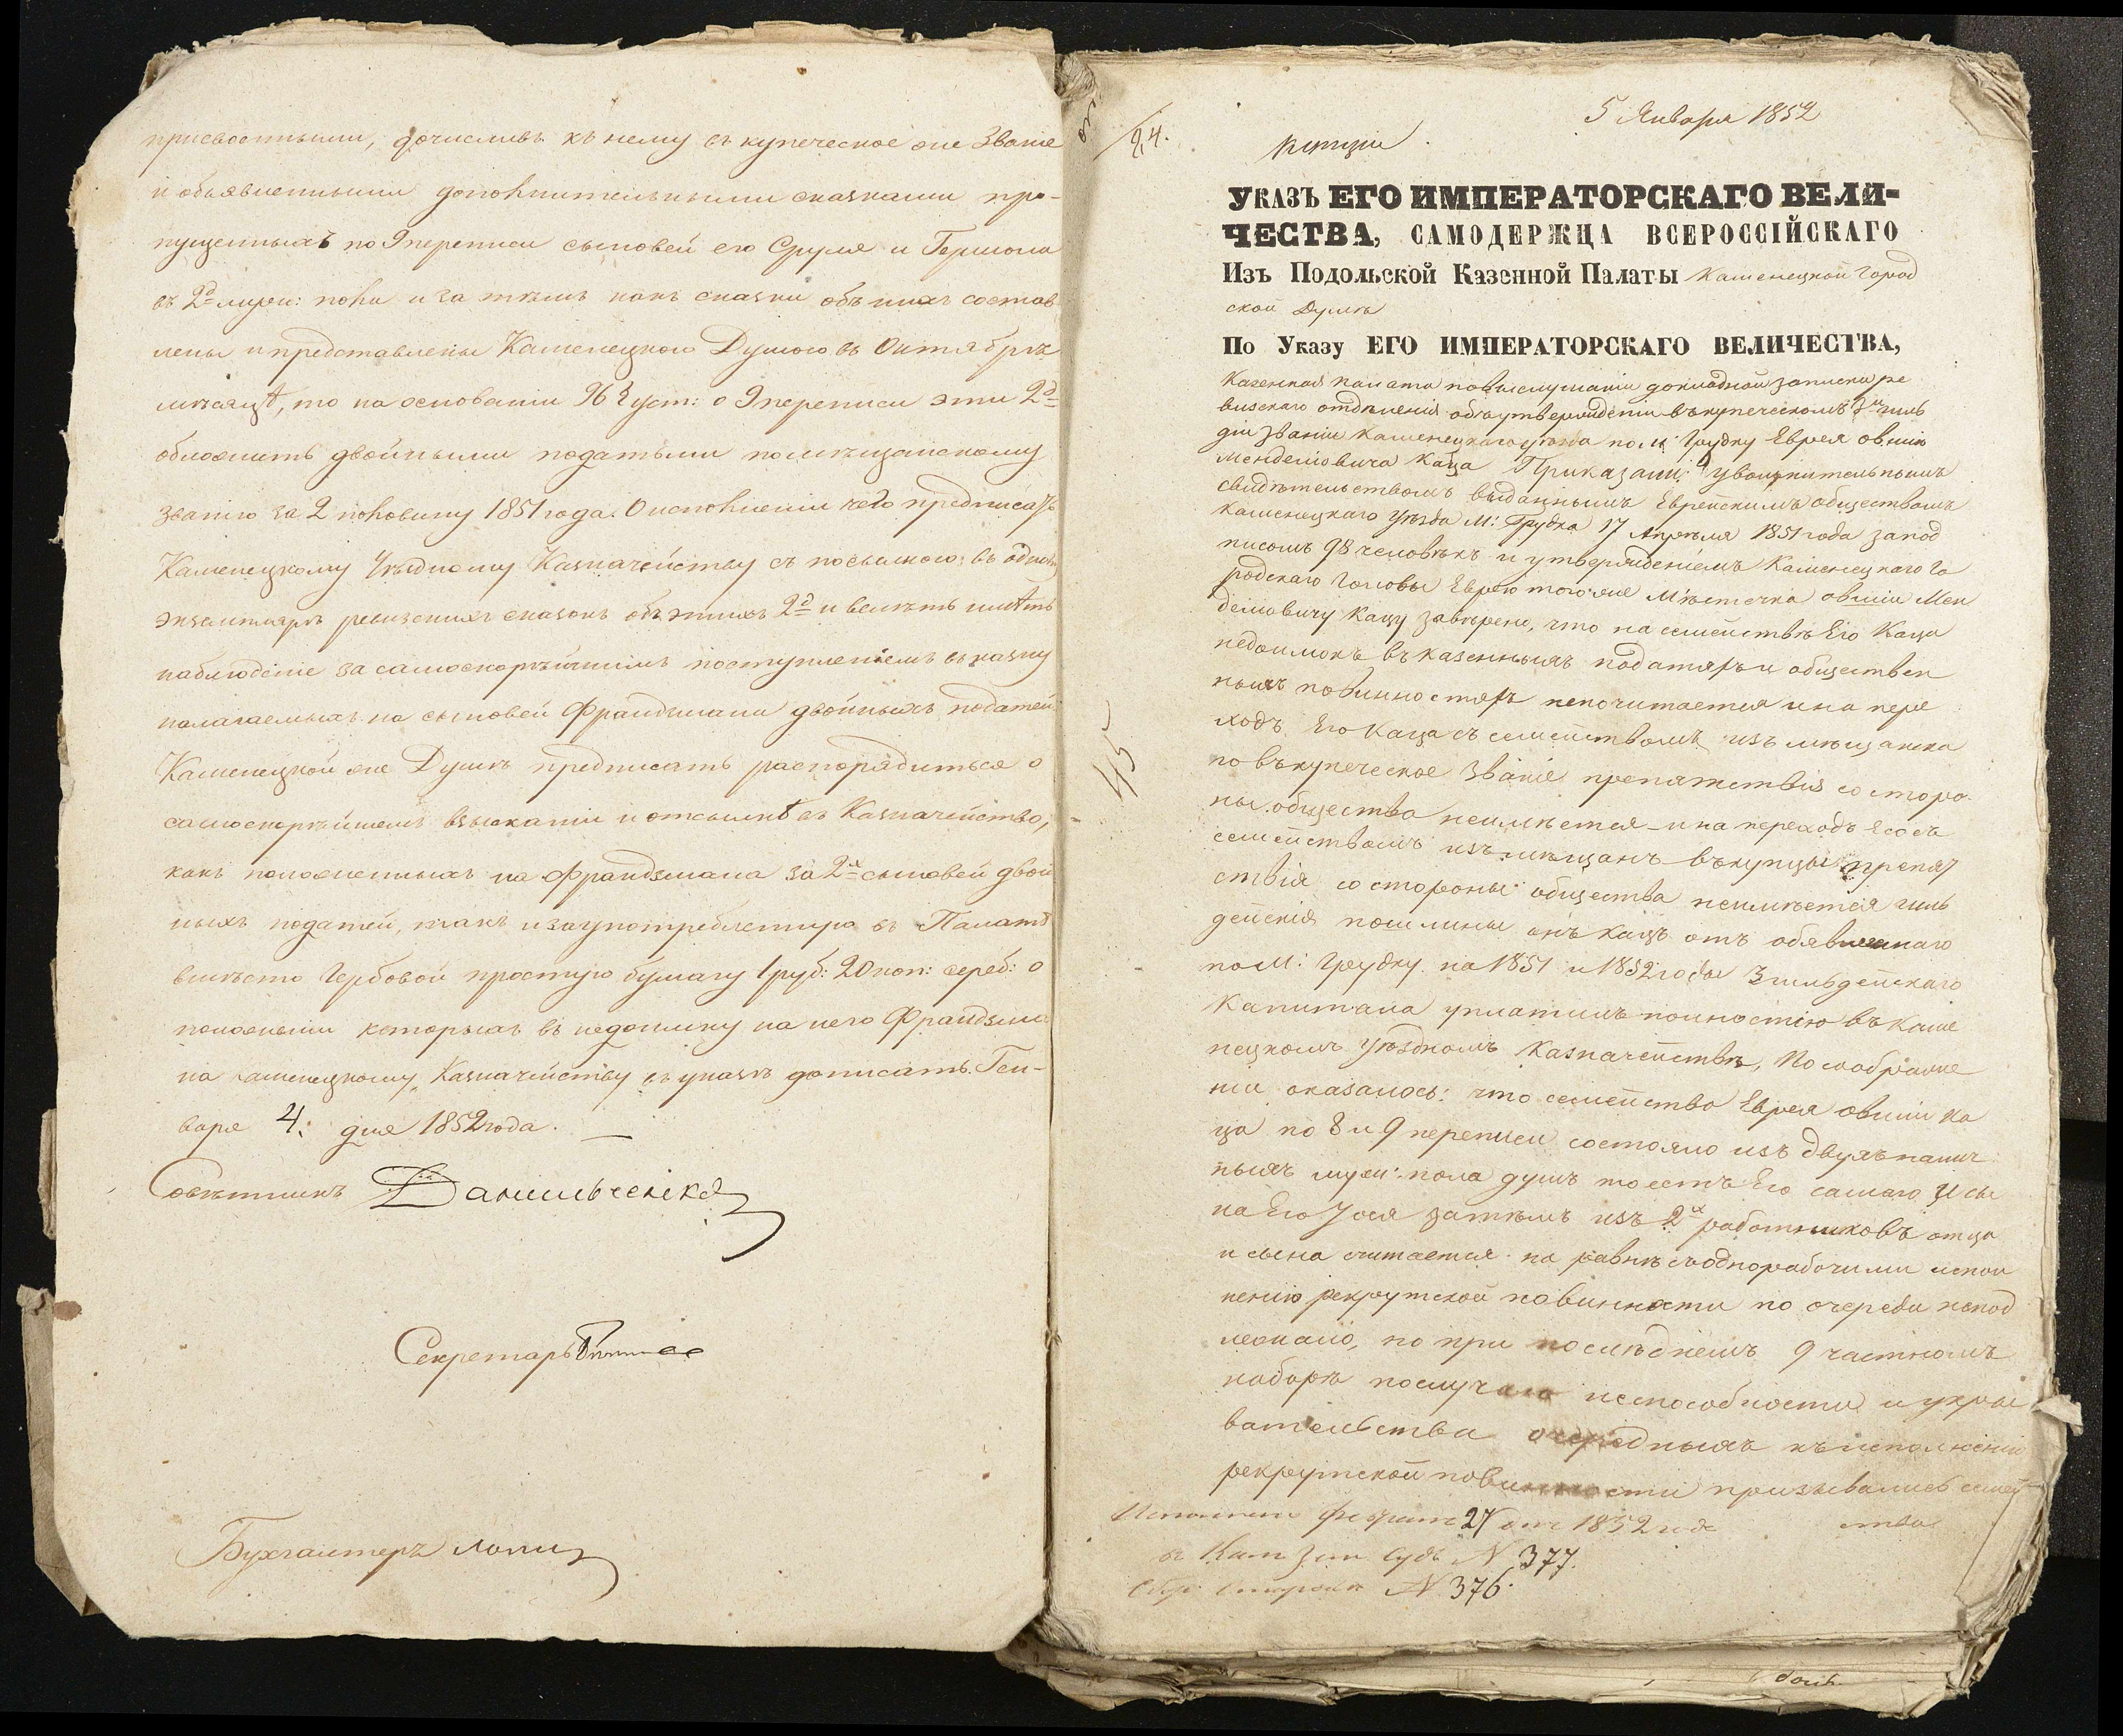 присвоенными, дочисливъ къ нему въ купеческое же званіе
и объявленными дополнительными сказками про-
пущенныхъ по 9 переписи сыновей его Сруля и Гершона
въ 2д муж: пола и за тѣмъ какъ сказки объ нихъ состав
лены и представлены Каменецкою Думою въ Октябрѣ
мѣсяцѣ, то на основаніи 96 § уст: о 9 переписи эти 2д
обложить двойными податьми по мѣщанскому
званію за 2 половину 1851 года. О исполненіи чего предписать
Каменецкому Уѣздному Казначейству съ посылкою въ одномъ
экземплярѣ ревизскихъ сказокъ объ этихъ 2д и велѣть имѣть
наблюденіе за самоскорѣйшимъ поступленіемъ въ казну
полагаемыхъ на сыновей Франдзмана двойныхъ податей
Каменецкой же Думѣ предписать распорядиться о
самоскорѣйшемъ взысканіи и отсылкѣ въ Казначейство,
какъ положенныхъ на Франдзмана за 2х сыновей двой
ныхъ податей, такъ и за употребленную въ Палатѣ
вмѣсто Гербовой простую бумагу 1 руб: 20 коп: сереб: о
положеніи которыхъ въ недоимку на него Франдзма
на Каменецкому Казначейству въ указѣ дописать. Ген-
варя 4: дня 1852 года.
Совѣтникъ Данильченко
Секретарь
Бухгалтеръ
24.
5 Января 1852
УКАЗЪ ЕГО ИМПЕРАТОРСКАГО ВЕЛИ-
ЧЕСТВА, САМОДЕРЖЦА ВСЕРОССІЙСКАГО
Изъ Подольской Казенной Палаты Каменецкой Город
ской Думѣ
По Указу ЕГО ИМПЕРАТОРСКАГО ВЕЛИЧЕСТВА,
Казенная палата по выслушаніи докладной записки ре
визскаго отдѣленія объ утвержденіи въ купеческомъ 3й гиль
діи званіи Каменецкаго уѣзда по м: Грудку Еврея Овшія
Менделіовича Каца Приказали: увольнительнымъ
свидѣтельствомъ выданнымъ Еврейскимъ обществомъ
Каменецкаго Уѣзда М: Грудка 17 Апрѣля 1851 года за под
писомъ 98 человѣкъ и утвержденіемъ Каменецкаго Го
родскаго Головы Еврею того же Мѣстечка Овшіи Мен
деліовичу Кацу завѣрено, что на семействѣ Его Каца
недоимокъ въ казенныхъ податяхъ и обществен
ныхъ повинностяхъ непочитается и на пере
ходъ Его Каца съ семействомъ изъ мѣщанска
го въ купеческое званіе препятствія со сторо
ны общества неимѣется и на переходъ Его съ
семействомъ изъ мѣщанъ въ купцы препят
ствія со стороны общества неимѣется гиль
дейскія пошлины онъ Кацъ отъ объявленнаго
по м: Грудку на 1851 и 1852 годы 3 гильдейскаго
Капитала уплатилъ полностію въ Каме
нецкомъ Уѣздномъ Казначействѣ, По соображе
ніи оказалось: что семейство Еврея Овшіи Ка
ца по 8 и 9 переписи состояло изъ двухъ налич
ныхъ муж: пола душъ то есть Его самаго И сы
на Его Іося затѣмъ изъ 2х работниковъ отца
и сына считается на равнѣ съ однорабочими испол
ненію рекрутской повинности по очереди непод
лежало, но при послѣднемъ 9 частномъ
наборѣ по случаю неспособности и укры
вательства очередныхъ къ исполненію
рекрутской повинности призывались семей
ства
27 1852 года
Судъ N 377.
N 376.